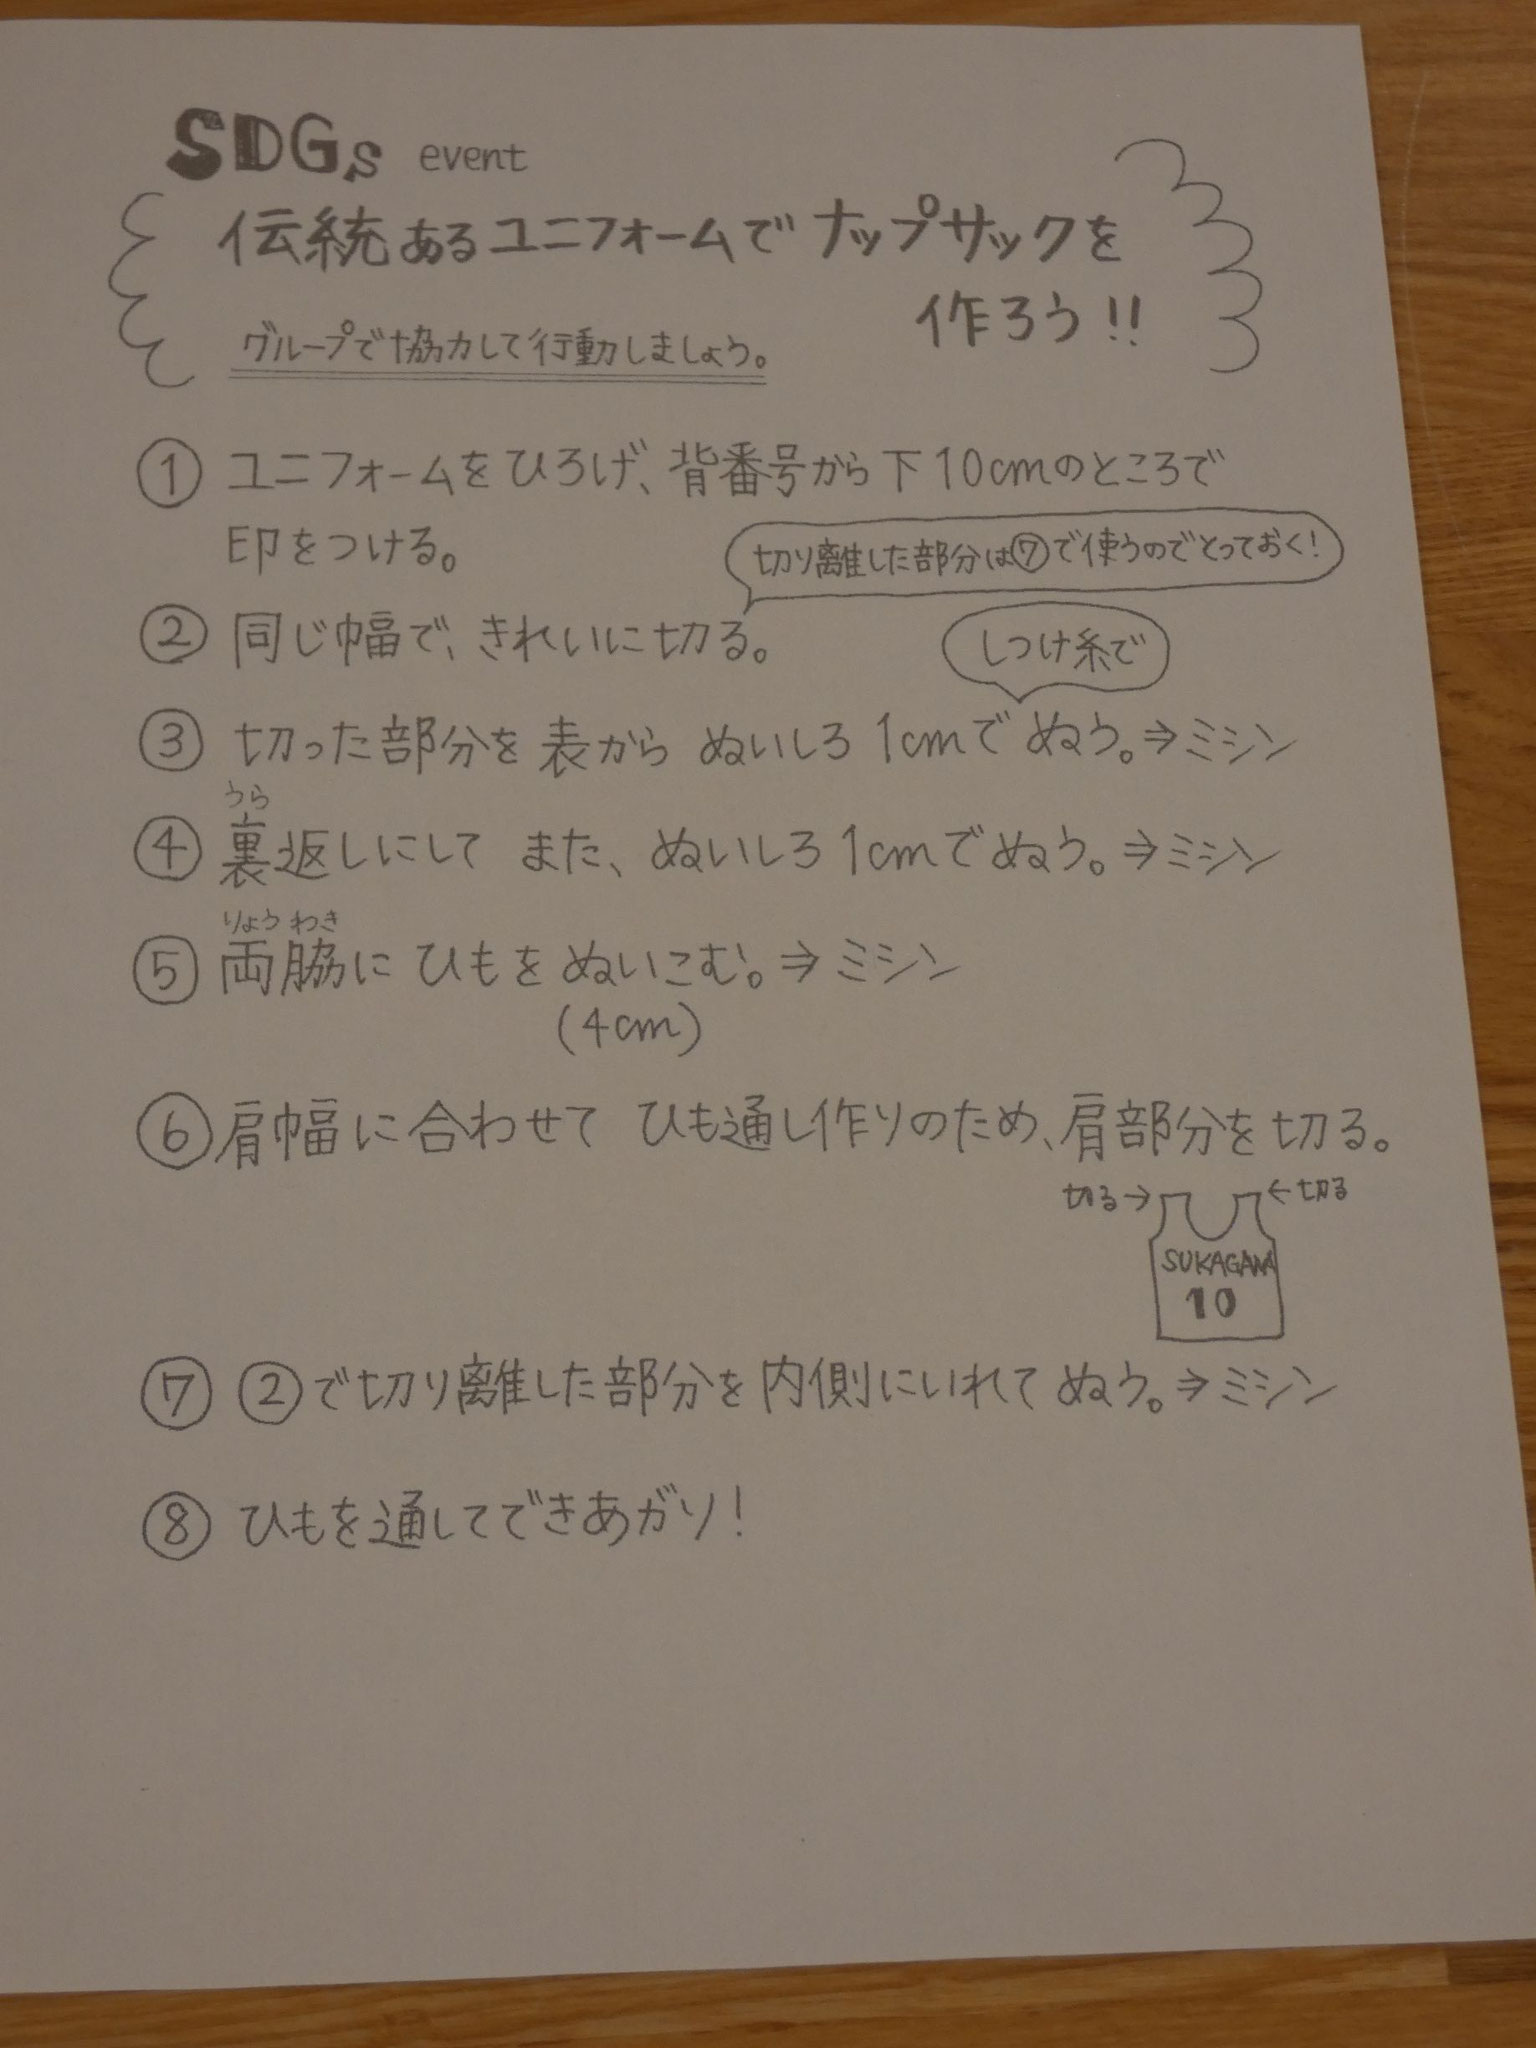 SDGs event
伝統あるユニフォームでナップサックを
作ろう!!
グループで協力して行動しましょう。
① ユニフォームをひろげ、背番号から下10cmのところで
印をつける。
切り離した部分は⑦で使うのでとっておく!
② 同じ幅で、きれいに切る。
しつけ糸で
③ 切った部分を表から ぬいしろ1cmでぬう。⇒ミシン
うら
④ 裏返しにして また、ぬいしろ1cmでぬう。⇒ミシン
りょう わき
⑤ 両脇に ひもを ぬいこむ。⇒ミシン
(4cm)
⑥ 肩幅に合わせて ひも通し作りのため、肩部分を切る。
切る→ ←切る
SUKAGAWA
10
⑦ ②で切り離した部分を内側にいれて ぬう。⇒ミシン
⑧ ひもを通してできあがり!